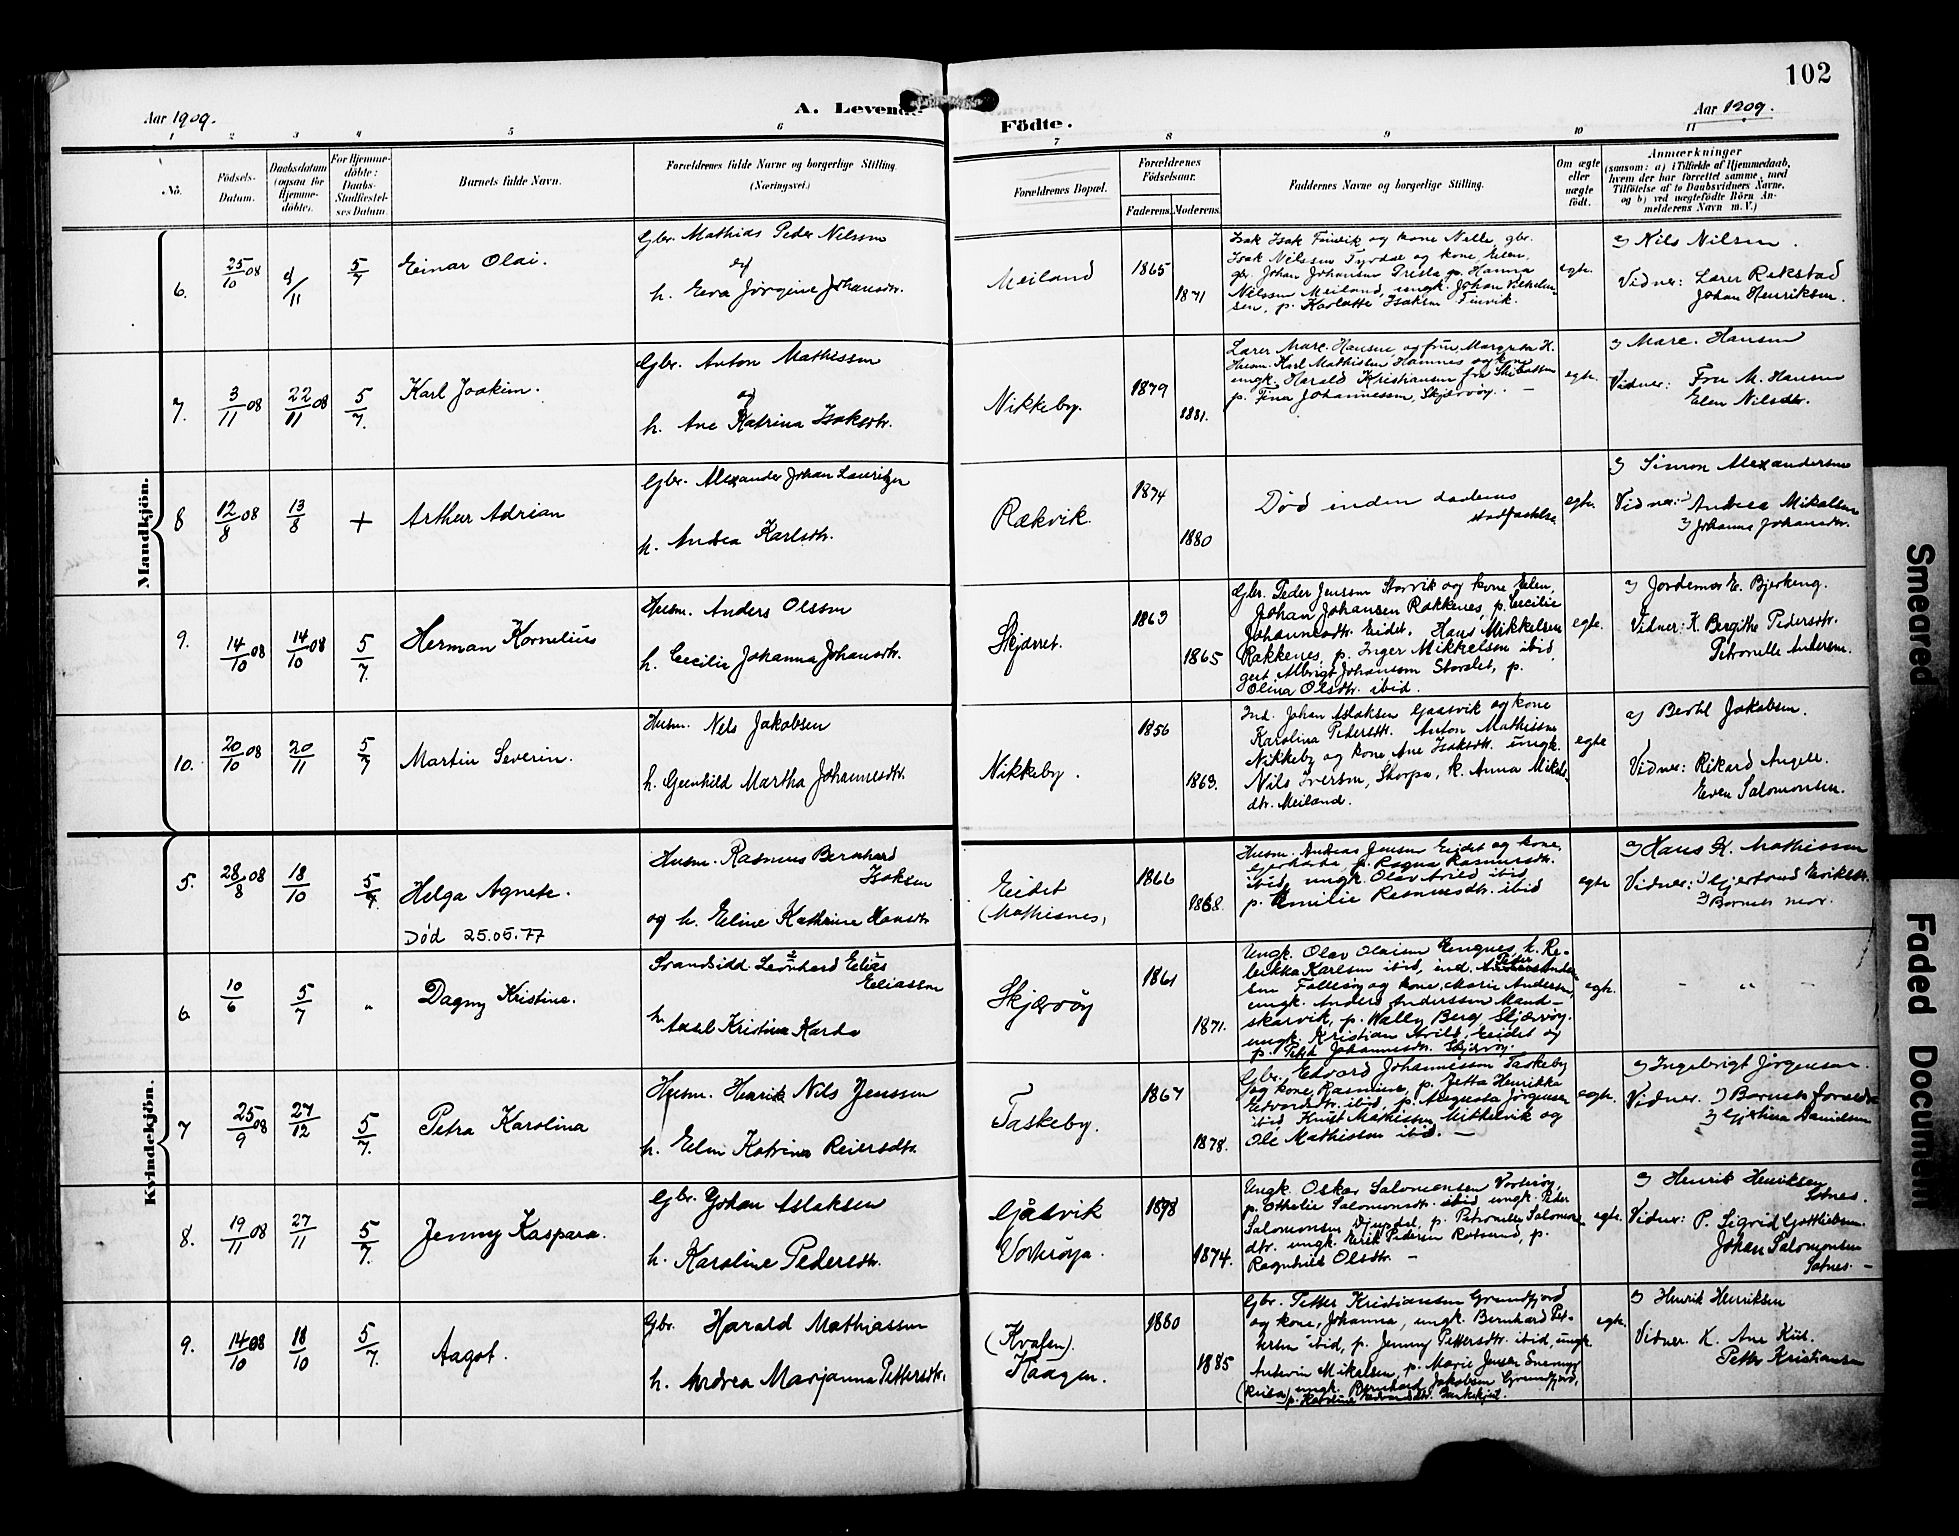 102
Aar 1909.
A. Levende
Födte.
Aar 1909.
1 2 3 4 5 6 7 8 9 10 11
No.
Födsels-
Datum.
Daabsdatum
(ogsaa for
Hjemme-
döbte).
For Hjemme-
döbte:
Daabs-
Stadfæstel-
ses Datum.
Barnets fulde Navn.
Forældrenes fulde Navne og borgerlige Stilling.
(Næringsvei.)
Forældrenes Bopæl.
Forældrenes
Födselsaar.
Faderens.
Moderens.
Faddernes Navne og borgerlige Stilling.
Om ægte
eller
uægte
födt.
Anmærkninger
(saasom: a) i Tilfælde af Hjemmedaab,
hvem der har forrettet samme, med
Tilföielse af to Daabsvidners Navne,
og b) ved uægtefödte Börn An-
melderens Navn m. V.)
Mandkjön.
6.
25/10 08
/11
5/7
Einar Olai.
Gbr. Mathias Peder Nilssen
og
h. Eva Jørgine Johansdtr.
Meiland
1865
1871
Isak Isak Finvik og kone Nella, gbr.
Isak Nilssen og kone Elen,
gbr. Johan Johansen p. Hanna
Nilssen Meiland, ungk. Johan Vilhelm-
sen, p. Karlotte Isaksen Finvik.
egte.
a) Nils Nilsen.
Vidner: Lærer Rekstad
Johan Henriksen.
7.
3/11 08
22/11 08
5/7.
Karl Joakim.
Gbr. Anton Mathissen
og
h. Ane Katrina Isaksdtr.
Nikkeby.
1879
1881.
Lærer Marc. Hansen og frue Margreta H.
Husm. Karl Mathissen Hamnes og kone
ungk. Harald Kristiansen fra Skibotten
p. Fina Johannessen, Skjærvøy. —
egte.
a) Marc. Hansen
Vidner: Fru M. Hansen
Elen Nilsdtr.
8
12/8 08
13/8
+
Arthur Adrian
Gbr. Alexander Johan Lauritzen
h. Andrea Karlsdtr.
Rækvik.
1874
1880
Død inden daabens
stadfæstelse
egte.
a) Simon Alexandersen
Vidner: 1) Andrea Mikalsen
2) Johanna Johansdtr.
9.
14/10 08
14/10 08
5/7.
Herman Kornelius
Husm. Anders Olssen
h. Cecilie Johanna Johansdtr.
Skjæret.
1863
1865
Gbr. Peder Jenssen Storvik og kone Elen,
Johan Johansen Rakkenes, p. Cecilie
Johannesdtr. Eidet. Hans Mikkelsen
Rakkenes, p. Inger Mikkelsen ibid,
gert. Albrigt Johansen Storslet, p.
Olina Olsdtr. ibid.
egte.
a) Jordemor E. Bjerkeng.
Vidner: K. Bergithe Pedersdtr.
Petronelle Andersen.
10.
20/10 08
20/11
5/7
Martin Severin.
Husm. Nels Jakobsen
h. Gunhild Martha Johannesdtr.
Nikkeby.
1856
1863.
Ind. Johan Aslaksen Gaasvik og kone
Karolina Pedersdtr. Anton Mathissen
Nikkeby og kone Ane Isaksdtr. ungk.
Nils Iversen, Skorpa, k. Anna Mikals-
dtr. Meiland.
egte
a) Bertel Jakobsen.
Vidner: Rikard Angell.
Even Salomonsen.
Kvindekjön.
5.
28/8 08
18/10
5/7
Helga Agnete.
Død 25.05.77
Husm. Rasmus Bernhard
Isaksen
og h. Eline Kathrine Hansdtr.
Eidet
(Mathisnes)
1866
1868.
Husm. Andreas Jensen Eidet og kone
p. Ragna Rasmusdtr.
ibid, ungk. Olav Arild ibid
p. Emilie Rasmusdtr. ibid
egte
a) Hans K. Mathissen
Vidner: 1) Gjertrud Eriksdtr.
2) Barnets mor.
6
10/6
5/7
"
Dagny Kristine.
Strandsidd. Leonhard Elias
Eliassen
h. Kristina Karda
Skjærvøy
1861
1871.
Ungk. Olav Olaisen Engnes, k. Re-
bekka Karlsen ibid, ind. Peter Ander-
sen Follesøy og kone Marie Andersen,
ungk. Anders Anderssen Maud-
skarvik, p. Wally Berg Skjærvøy.
ungk. Kristian Arild, Eidet og
p. Petra Johannesdtr. Skjærvøy.
egte.
- " -
7
25/9 08
27/12
5/7.
Petra Karolina
Husm. Henrik Nils Jenssen
h. Elen Katrina Reiersdtr.
Taskeby.
1867
1878.
Gbr. Edvard Johannessen Taskeby
og kone Rasmine, p. Jetta Henrikka
Edvardsdtr. ibid, p. Augusta Jørgensen
ibid Knut Mathissen Mittelvik og
Ole Mathissen ibid. —
egte.
a) Ingebrigt Jørgensen.
Vidner. 1) Barnets forældre
2) Danielsen
8.
19/11 08
27/11
5/7.
Jenny Kaspara.
Gbr. Johan Aslaksen
h. Karoline Pedersdtr.
Gåsvik
Vorterøya.
1874.
Ungk. Oskar Salomonsen Vorterøy,
p. Othelie Salomonsdtr. ibid ungk. Peder
Salomonsen Djupdal, p. Petronelle Salomons-
dtr. ungk. Erik Pedersen Rotsund, p.
Ragnhild Olsdtr. —
egte.
a) Henrik Henriksen
Sotnes.
Vidner: P. Sigrid Gottliebsen
Johan Salomonsen
Sotnes. —
9.
14/10 08
18/10
5/7.
Aagot.
Gbr. Harald Mathiassen
h. Andrea Marjanna Pettersdtr.
(Kvalen).
Kaagen.
1880
1885
Gbr. Petter Kristiansen Grundfjord
og kone, Johanna, ungk. Bernhard Pet-
tersen ibid, p. Jenny Pettersdtr. ibid, ungk.
Antevin Mikalsen, p. Marie Jensen
ungk. Bernhard Jakobsen Grundfjord,
p. Karoline Edvardsdtr.
egte.
a) Henrik Henriksen
Vidner. K. Ane Kris.
Petter Kristiansen
Smeared
Faded Document